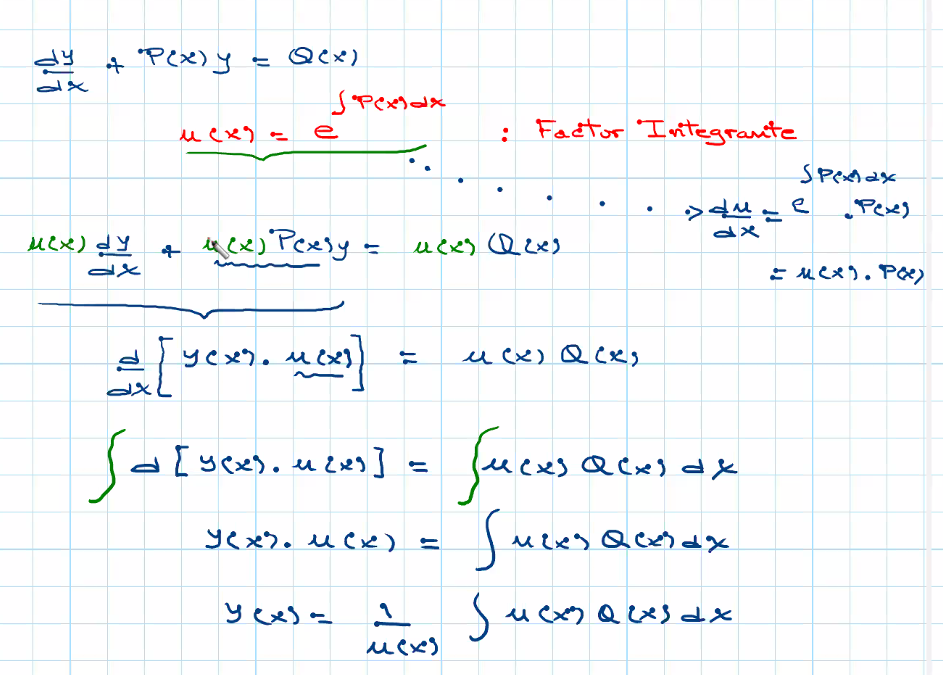 dy/dx + P(x) y = Q(x)
u(x) = e^∫P(x)dx : Factor Integrante
⇒ du/dx = e^∫P(x)dx . P(x)
= u(x) . P(x)
u(x) dy/dx + u(x) P(x) y = u(x) Q(x)
d/dx [ y(x) . u(x) ] = u(x) Q(x)
∫ d [ y(x) . u(x) ] = ∫ u(x) Q(x) dx
y(x) . u(x) = ∫ u(x) Q(x) dx
y(x) = 1/u(x) ∫ u(x) Q(x) dx